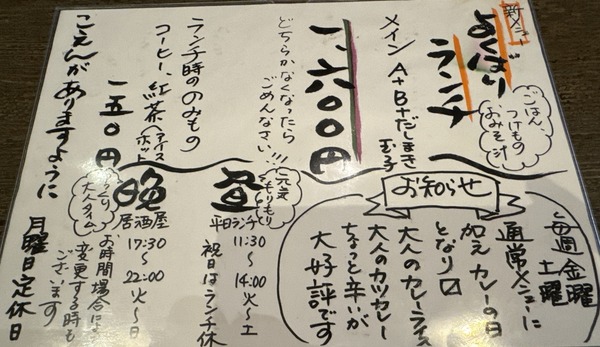 新メニュー
よくばり
ランチ
ごはん、
つけもの
おみそ汁
メイン A+B+だしまき
玉子
一、六〇〇円
どちらかなくなったら
ごめんなさい!!
ランチ時ののみもの
コーヒー、紅茶(アイス
ホット
一五〇円
こえんがありますように
お知らせ
毎週 金曜
土曜
通常メニューに
加え カレーの日
となり〼
大人のカレーライス
大人のカツカレー
ちょっと辛いが
大好評です
元気
もりもり
昼
平日ランチ
11:30
〜
14:00
火〜土
祝日はランチ休
晩
居酒屋
17:30
〜
22:00
火〜日
お時間場合によ
変更する時も
ございます
大人タイム
月曜日定休日